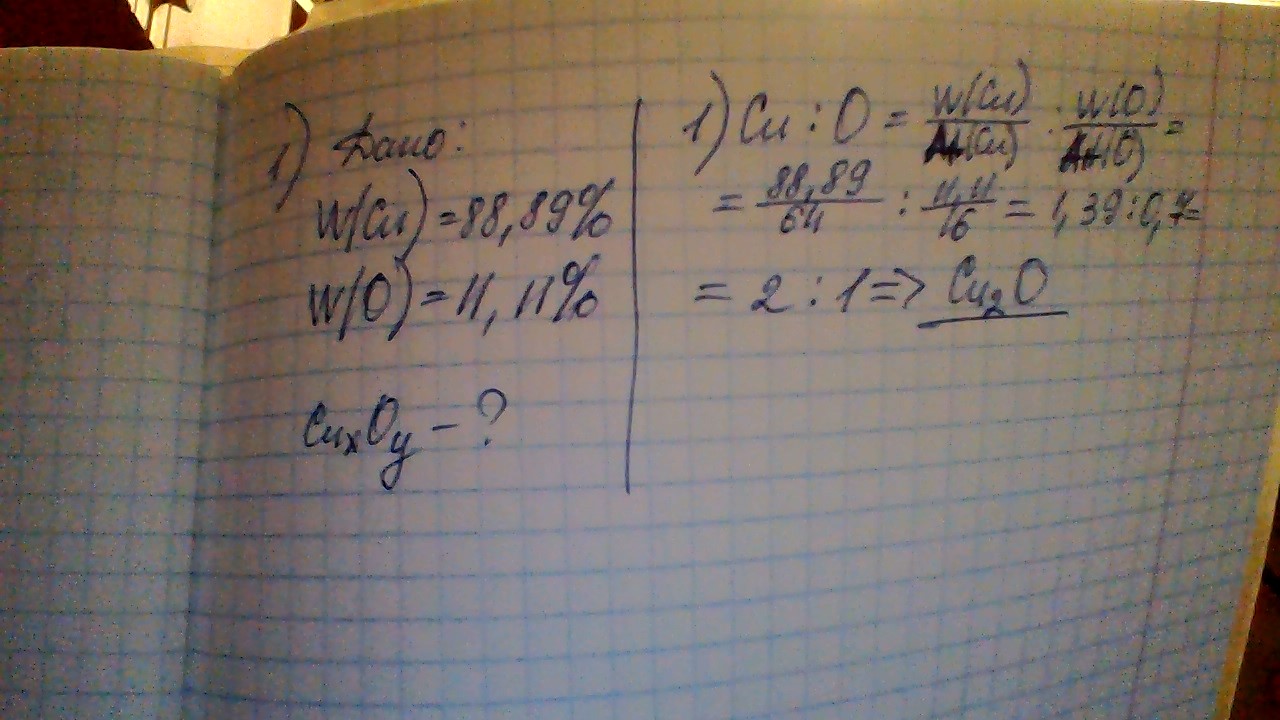 1) Дано:
W(Cu)=88,89%
W(O)=11,11%
CuxOy - ?
1) Cu : O = W(Cu)/Ar(Cu) : W(O)/Ar(O) =
= 88,89/64 : 11,11/16 = 1,39:0,7=
= 2 : 1 => Cu₂O